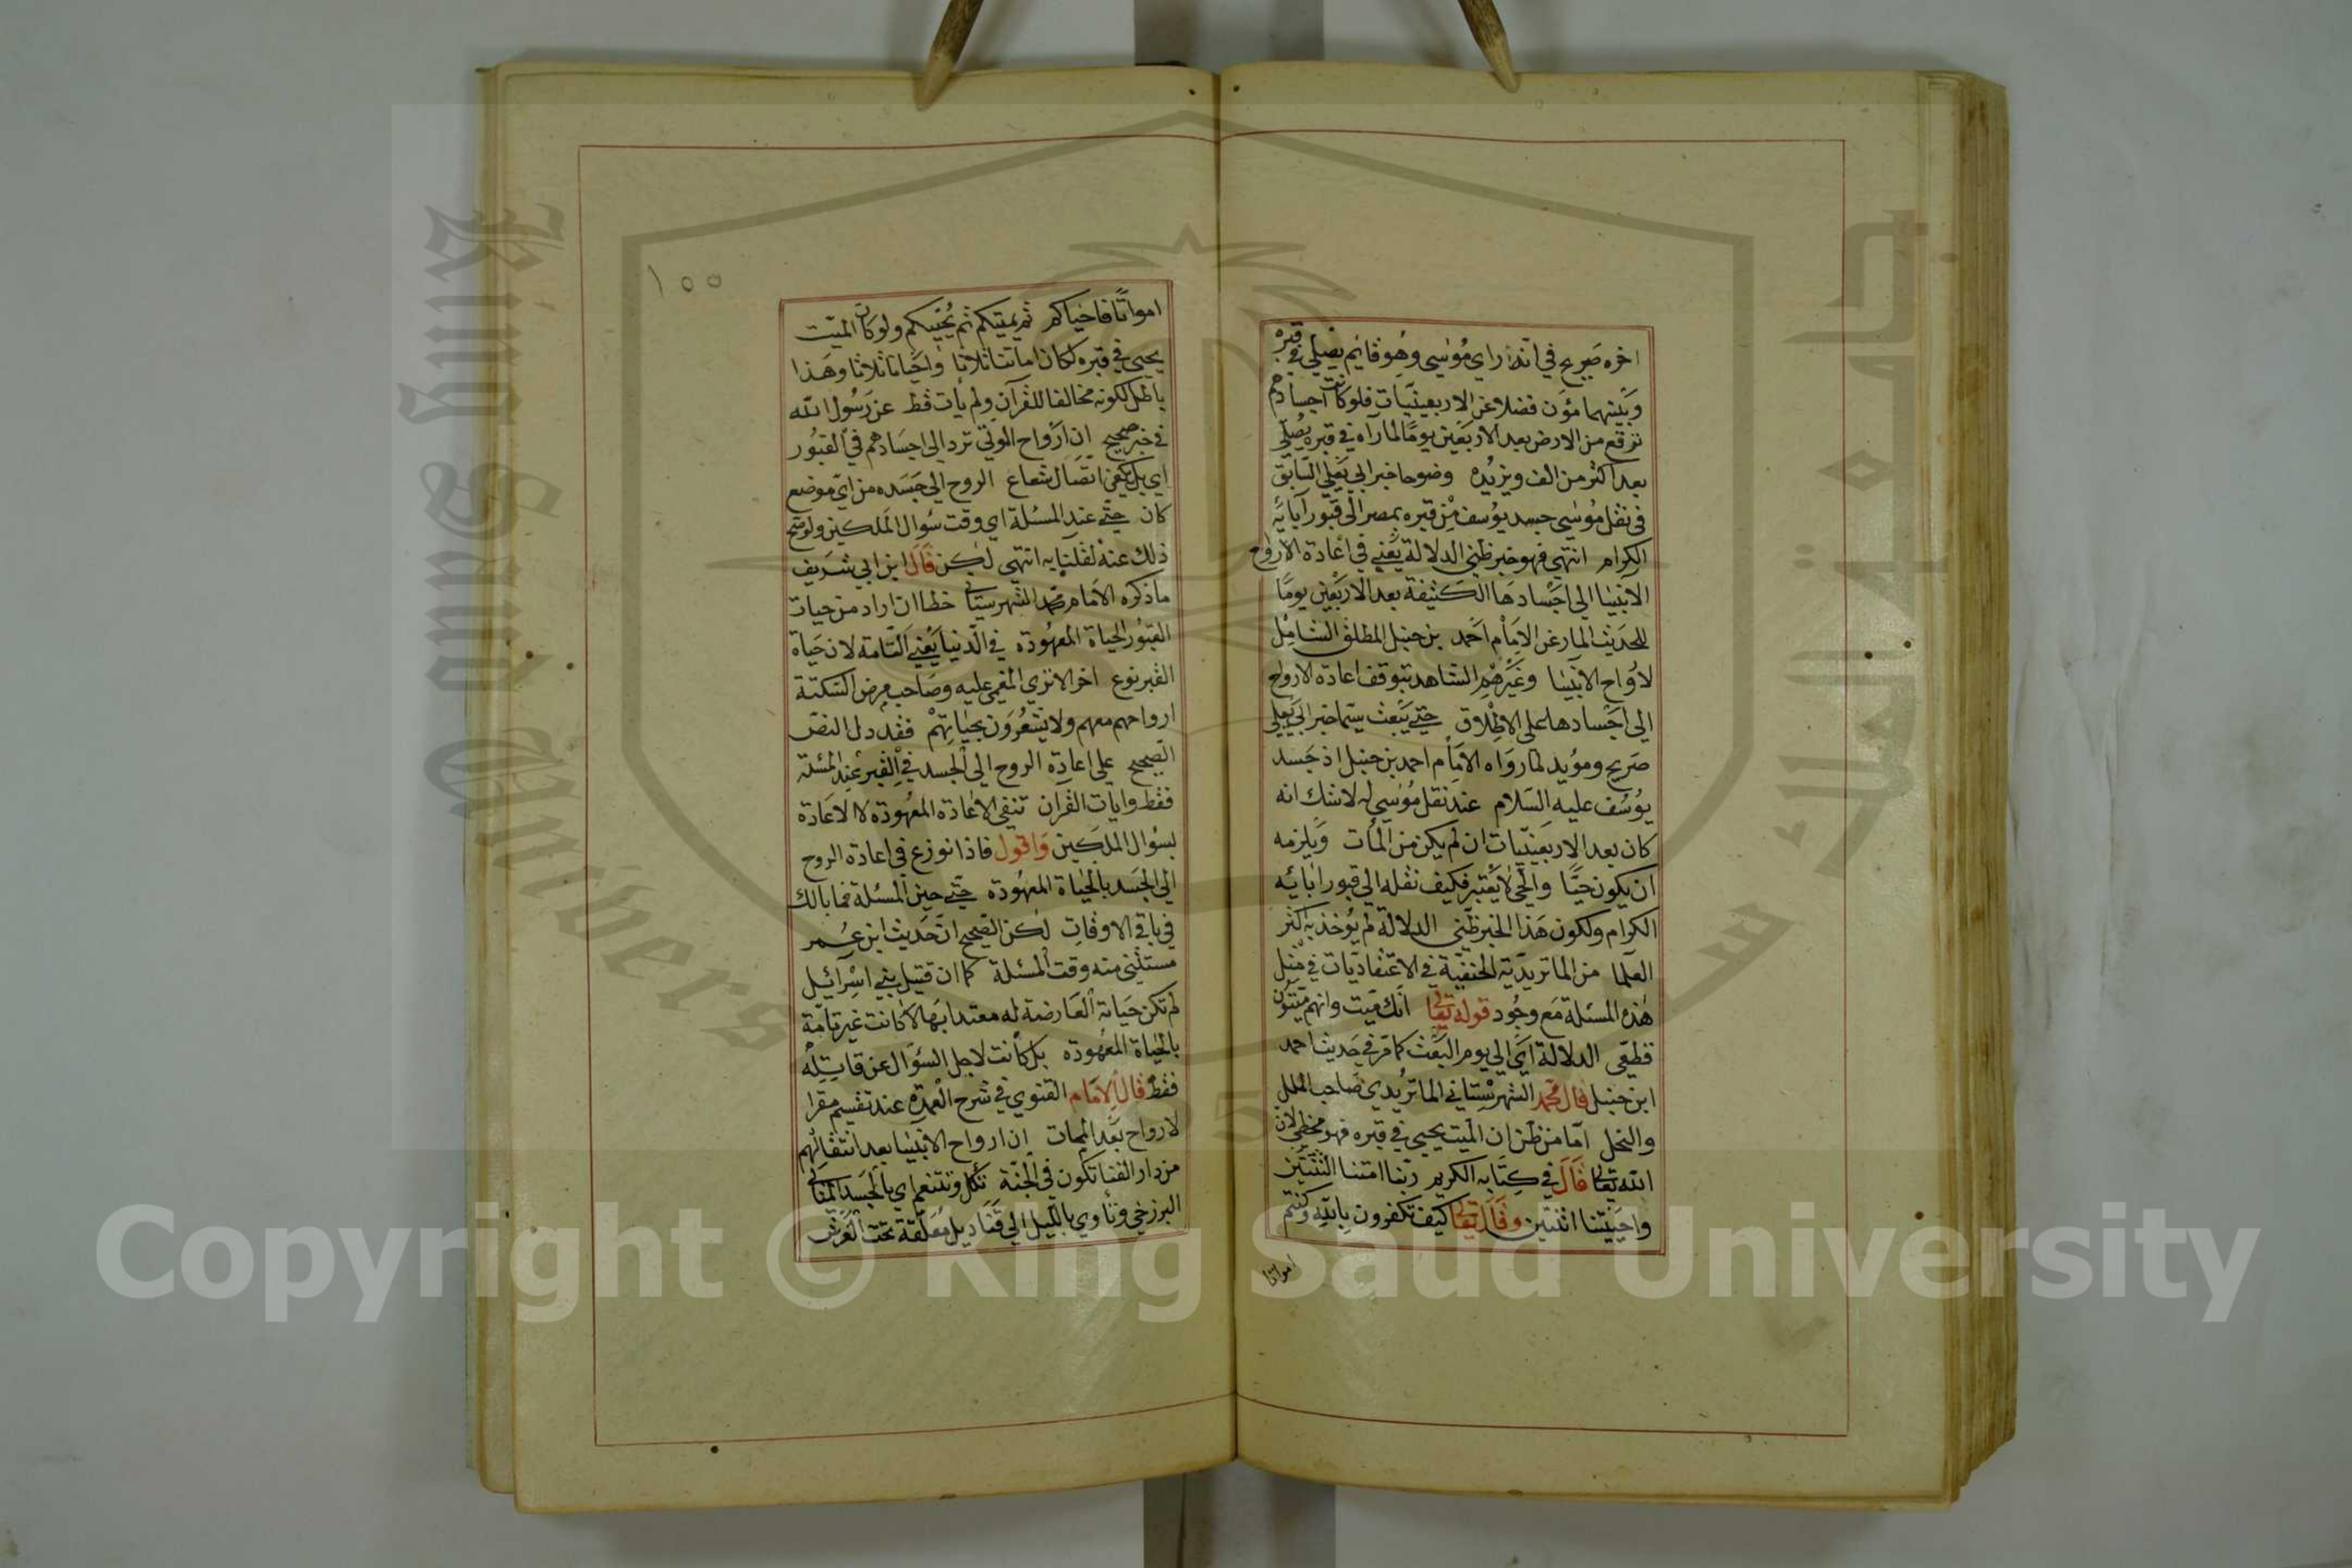 اخره صريح في انه راي موسى وهو قايم يصلي في قبره
وبينهما مؤن فضلا عن الاربعينيات فلو كانت اجسادهم
ترفع من الارض بعد الاربعين يوما لما رآه في قبره يصلي
بعد اكثر من الف ويزيده وضوحا خبر ابي يعلي السابق
في نقل موسى جسد يوسف من قبره بمصر الى قبور آبايه
الكرام انتهي فهو خبر ظني الدلالة يعني في اعادة الارواح
الانبيا الى اجسادها الكثيفة بعد الاربعين يوما
للحديث المار عن الامام احمد بن حنبل المطلق الشامل
لارواح الانبيا وغيرهم الشاهد بتوقف اعادة الارواح
الى اجسادها على الاطلاق حتى يبعث سيما خبر ابي يعلي
صريح ومؤيد لما رواه الامام احمد بن حنبل اذ جسد
يوسف عليه السلام عند نقل موسى له لا شك انه
كان بعد الاربعينيات ان لم يكن من المأت ويلزمه
ان يكون حيا والحي لا يقبر فكيف نقله الى قبور ابائه
الكرام ولكون هذا الخبر ظني الدلالة لم يؤخذ به اكثر
العلما من الماتريدية الحنفية في الاعتقاديات في مثل
هذه المسئلة مع وجود قوله تعالى انك ميت وانهم ميتون
قطعي الدلالة اي الى يوم البعث كما مر في حديث احمد
ابن حنبل قال محمد الشهرستاني الماتريدي صاحب الملل
والنحل اما من ظن ان الميت يحيى في قبره فهو مخطي لان
الله تعالى قال في كتابه الكريم ربنا امتنا اثنتين
واحييتنا اثنتين وقال تعالى كيف تكفرون بالله وكنتم
امواتا
١٥٥
امواتا فاحياكم ثم يميتكم ثم يحييكم ولو كان الميت
يحيى في قبره لكان اماتنا ثلاثا واحيانا ثلاثا وهذا
باطل لكونه مخالفا للقرآن ولم يأت قط عن رسول الله
في خبر صحيح ان ارواح الموتى ترد الى اجسادهم في القبور
اي بل يكفي اتصال شعاع الروح الى جسده من اي موضع
كان حتى عند المسئلة اي وقت سؤال الملكين ولو صح
ذلك عنه لقلنا به انتهى لكن قال ابن ابي شريف
ما ذكره الامام محمد الشهرستاني خطا ان اراد من حيات
القبور الحياة المعهودة في الدنيا يعني التامة لان حياة
القبر نوع اخر الا ترى المغمى عليه وصاحب مرض السكتة
ارواحهم معهم ولا يشعرون بحياتهم فقد دل النص
الصحيح على اعادة الروح الى الجسد في القبر عند المسئلة
فقط وايات القرآن تنفي الاعادة المعهودة لا الاعادة
بسؤال الملكين واقول فاذا نوزع في اعادة الروح
الى الجسد بالحياة المعهودة حتى حين المسئلة فما بالك
في باقي الاوقات لكن الصحيح ان حديث ابن عمر
مستثنى منه وقت المسئلة كما ان قتيل بني اسرائيل
لم تكن حياته العارضة له معتدا بها لا كانت غير تامة
بالحياة المعهودة بل كانت لاجل السؤال عن قاتله
فقط قال الامام القنوي في شرح العمدة عند تقسيم مقرا
لارواح بعد الممات ان ارواح الانبيا بعد انتقالهم
من دار الفنا تكون في الجنة تأكل وتتنعم اي بالجسد المثالي
البرزخي وتأوي بالليل الى قناديل معلقة تحت العرش
King Saud University
Copyright © King Saud University